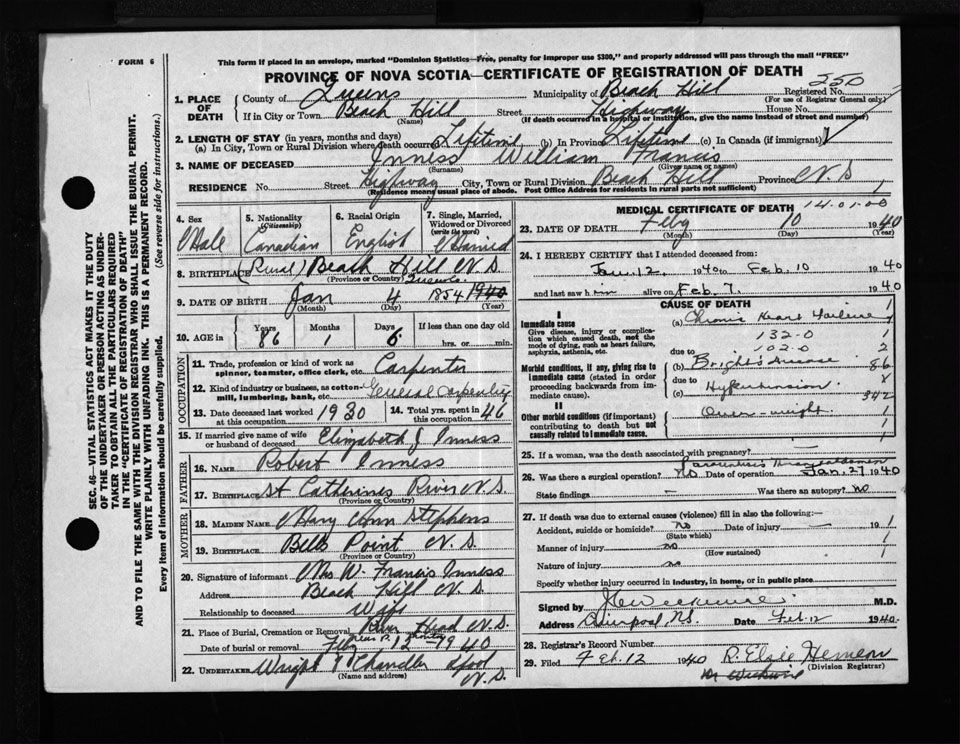 FORM 6
This form if placed in an envelope, marked "Dominion Statistics—Free, penalty for improper use $300," and properly addressed will pass through the mail "FREE"
PROVINCE OF NOVA SCOTIA—CERTIFICATE OF REGISTRATION OF DEATH
250
1. PLACE OF DEATH County of Queens Municipality of Beach Hill Registered No.
(For use of Registrar General only)
If in City or Town Beach Hill Street Highway House No.
(Name) (If death occurred in a hospital or institution, give the name instead of street and number)
2. LENGTH OF STAY (in years, months and days)
(a) In City, Town or Rural Division where death occurred Lifetime (b) In Province Lifetime (c) In Canada (if immigrant)
3. NAME OF DECEASED Inness William Francis
(Surname) (Given name or names)
RESIDENCE No. Street Highway City, Town or Rural Division Beach Hill Province N.S.
(Residence means usual place of abode. Post Office Address for residents in rural parts not sufficient)
4. Sex Male
5. Nationality (Citizenship) Canadian
6. Racial Origin English
7. Single, Married, Widowed or Divorced (write the word) Married
8. BIRTHPLACE (Rural) Beach Hill N.S.
(Province or Country) Queens Co.
9. DATE OF BIRTH Jan 4 1854 1940
(Month) (Day) (Year)
10. AGE in Years 86 Months 1 Days 6 If less than one day
hrs. or min.
OCCUPATION
11. Trade, profession or kind of work as spinner, teamster, office clerk, etc. Carpenter
12. Kind of industry or business, as cotton-mill, lumbering, bank, etc. General Carpentry
13. Date deceased last worked at this occupation 1930
14. Total yrs. spent in this occupation 46
15. If married give name of wife or husband of deceased Elizabeth J Inness
FATHER
16. NAME Robert Inness
17. BIRTHPLACE St Catherines River N.S.
(Province or Country)
MOTHER
18. MAIDEN NAME Mary Ann Stephens
19. BIRTHPLACE Bells Point N.S.
(Province or Country)
20. Signature of informant Mrs W. Francis Inness
Address Beach Hill N.S.
Relationship to deceased Wife
21. Place of Burial, Cremation or Removal River Head N.S.
Date of burial or removal Feby 12 1940
22. UNDERTAKER Wright & Chandler L'pool N.S.
(Name and address)
MEDICAL CERTIFICATE OF DEATH 14.01.00
23. DATE OF DEATH Feby 10 1940
(Month) (Day) (Year)
24. I HEREBY CERTIFY that I attended deceased from:
Jan. 12, 1940 to Feb. 10 1940
and last saw him alive on Feb. 7. 1940
CAUSE OF DEATH
I
Immediate cause
Give disease, injury or complication which caused death, not the mode of dying, such as heart failure, asphyxia, asthenia, etc.
(a) Chronic Heart Failure
132.0
due to 102.0 2
Morbid conditions, if any, giving rise to immediate cause (stated in order proceeding backwards from immediate cause).
(b) Bright's disease 86
due to Hypertension
(c) 342
II
Other morbid conditions (if important) contributing to death but not causally related to immediate cause.
Over-weight
25. If a woman, was the death associated with pregnancy?
26. Was there a surgical operation? No Date of operation Jan. 27, 1940
State findings — Was there an autopsy? no
27. If death was due to external causes (violence) fill in also the following:—
Accident, suicide or homicide? no Date of injury — 19
(State which)
Manner of injury no
(How sustained)
Nature of injury no
Specify whether injury occurred in industry, in home, or in public place
Signed by M.D.
Address Liverpool N.S. Date Feb 12 1940
28. Registrar's Record Number
29. Filed Feb. 12 1940 R. Elsie Hemeon
(Division Registrar)
SEC. 46—VITAL STATISTICS ACT MAKES IT THE DUTY
OF THE UNDERTAKER OR PERSON ACTING AS UNDERTAKER TO OBTAIN ALL THE PARTICULARS REQUIRED
IN THE "CERTIFICATE OF REGISTRATION OF DEATH"
AND TO FILE THE SAME WITH THE DIVISION REGISTRAR WHO SHALL ISSUE THE BURIAL PERMIT.
WRITE PLAINLY WITH UNFADING INK. THIS IS A PERMANENT RECORD.
Every item of information should be carefully supplied. (See reverse side for instructions.)